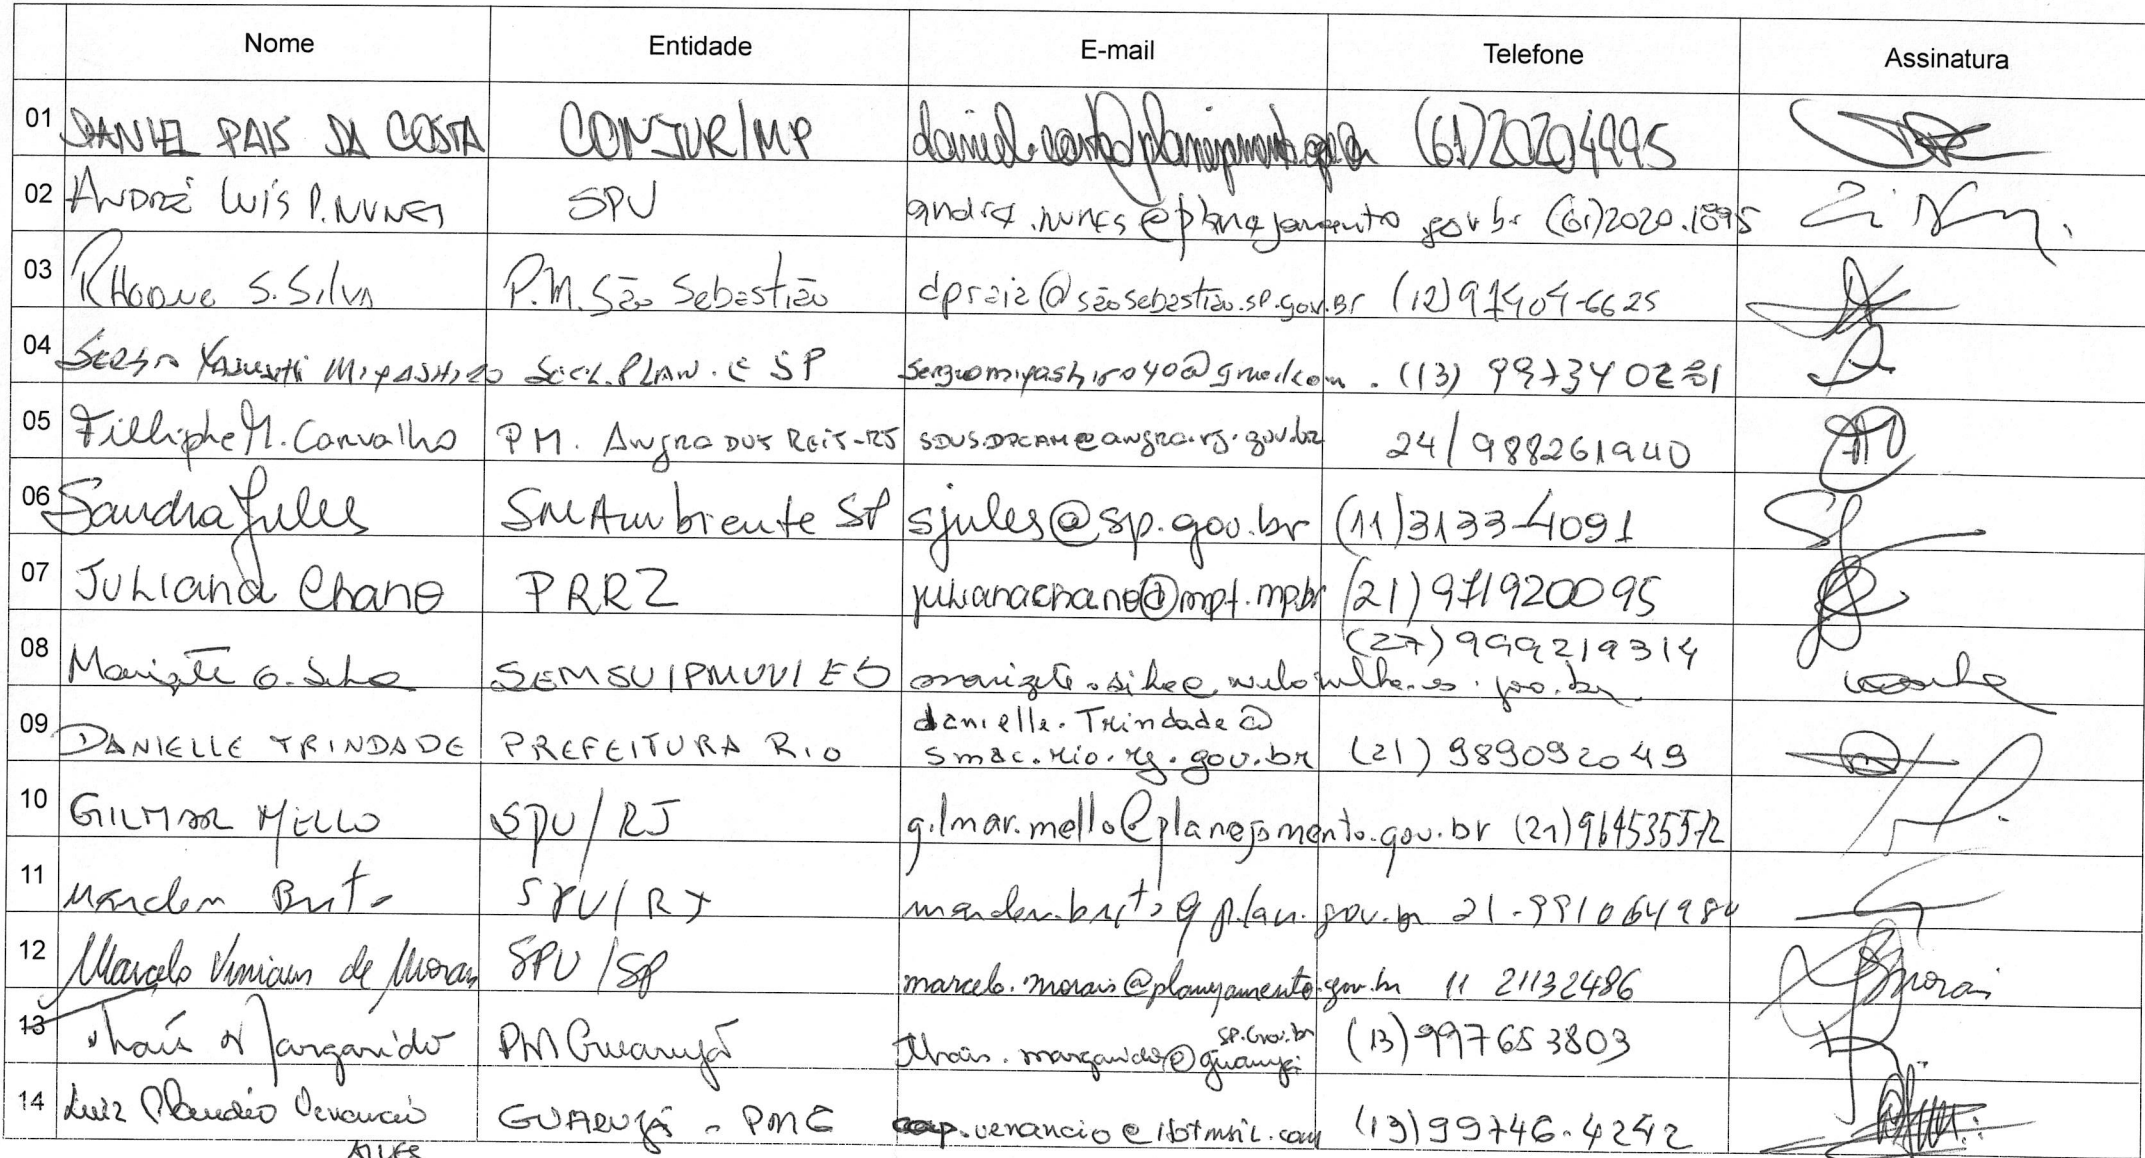 Nome Entidade E-mail Telefone Assinatura
01 DANIEL PAIS DA COSTA CONJUR/MP (61) 20204995
02 ANDRÉ LUÍS P. NUNES SPU andre.nunes@planejamento.gov.br (61)2020.1895
03 S. SILVA P.M. São Sebastião dpraia@sãosebastião.sp.gov.br (12) 97404-6625
04 MIYASHIRO PLAN. E SP sergiomiyashiro40@gmail.com. (13)
05 Filliphe M. Carvalho PM. ANGRA DOS REIS-RJ SDUS.DPCAM@angra.rj.gov.br 24/988261940
06 Sandra Jules SMAmbiente SP sjules@sp.gov.br (11)3133-4091
07 JULIANA Chano PRR2 julianachano@mpf.mp.br (21) 971920095
(27) 999219314
08 Marizete G. Silva SEMSU/PMVV/ES
danielle.Trindade@
09 DANIELLE TRINDADE PREFEITURA RIO smac.rio.rj.gov.br (21) 989092049
10 GILMAR MELLO SPU/RJ gilmar.mello@planejamento.gov.br (21) 964535572
11 Marden Brito SPU/RJ marden.brito@plan.gov.br 21-991064984
12 Marcelo Vinicius de Morais SPU/SP marcelo.morais@planejamento.gov.br 11 21132486 Morais
sp.Gov.br
13 Thaís Margarido PM Guarujá thais.margarido@guaruja (13) 997653803
14 Luiz Claudio Venancio GUARUJÁ - PMG cap.venancio@hotmail.com (13) 99746-4242
ALVES